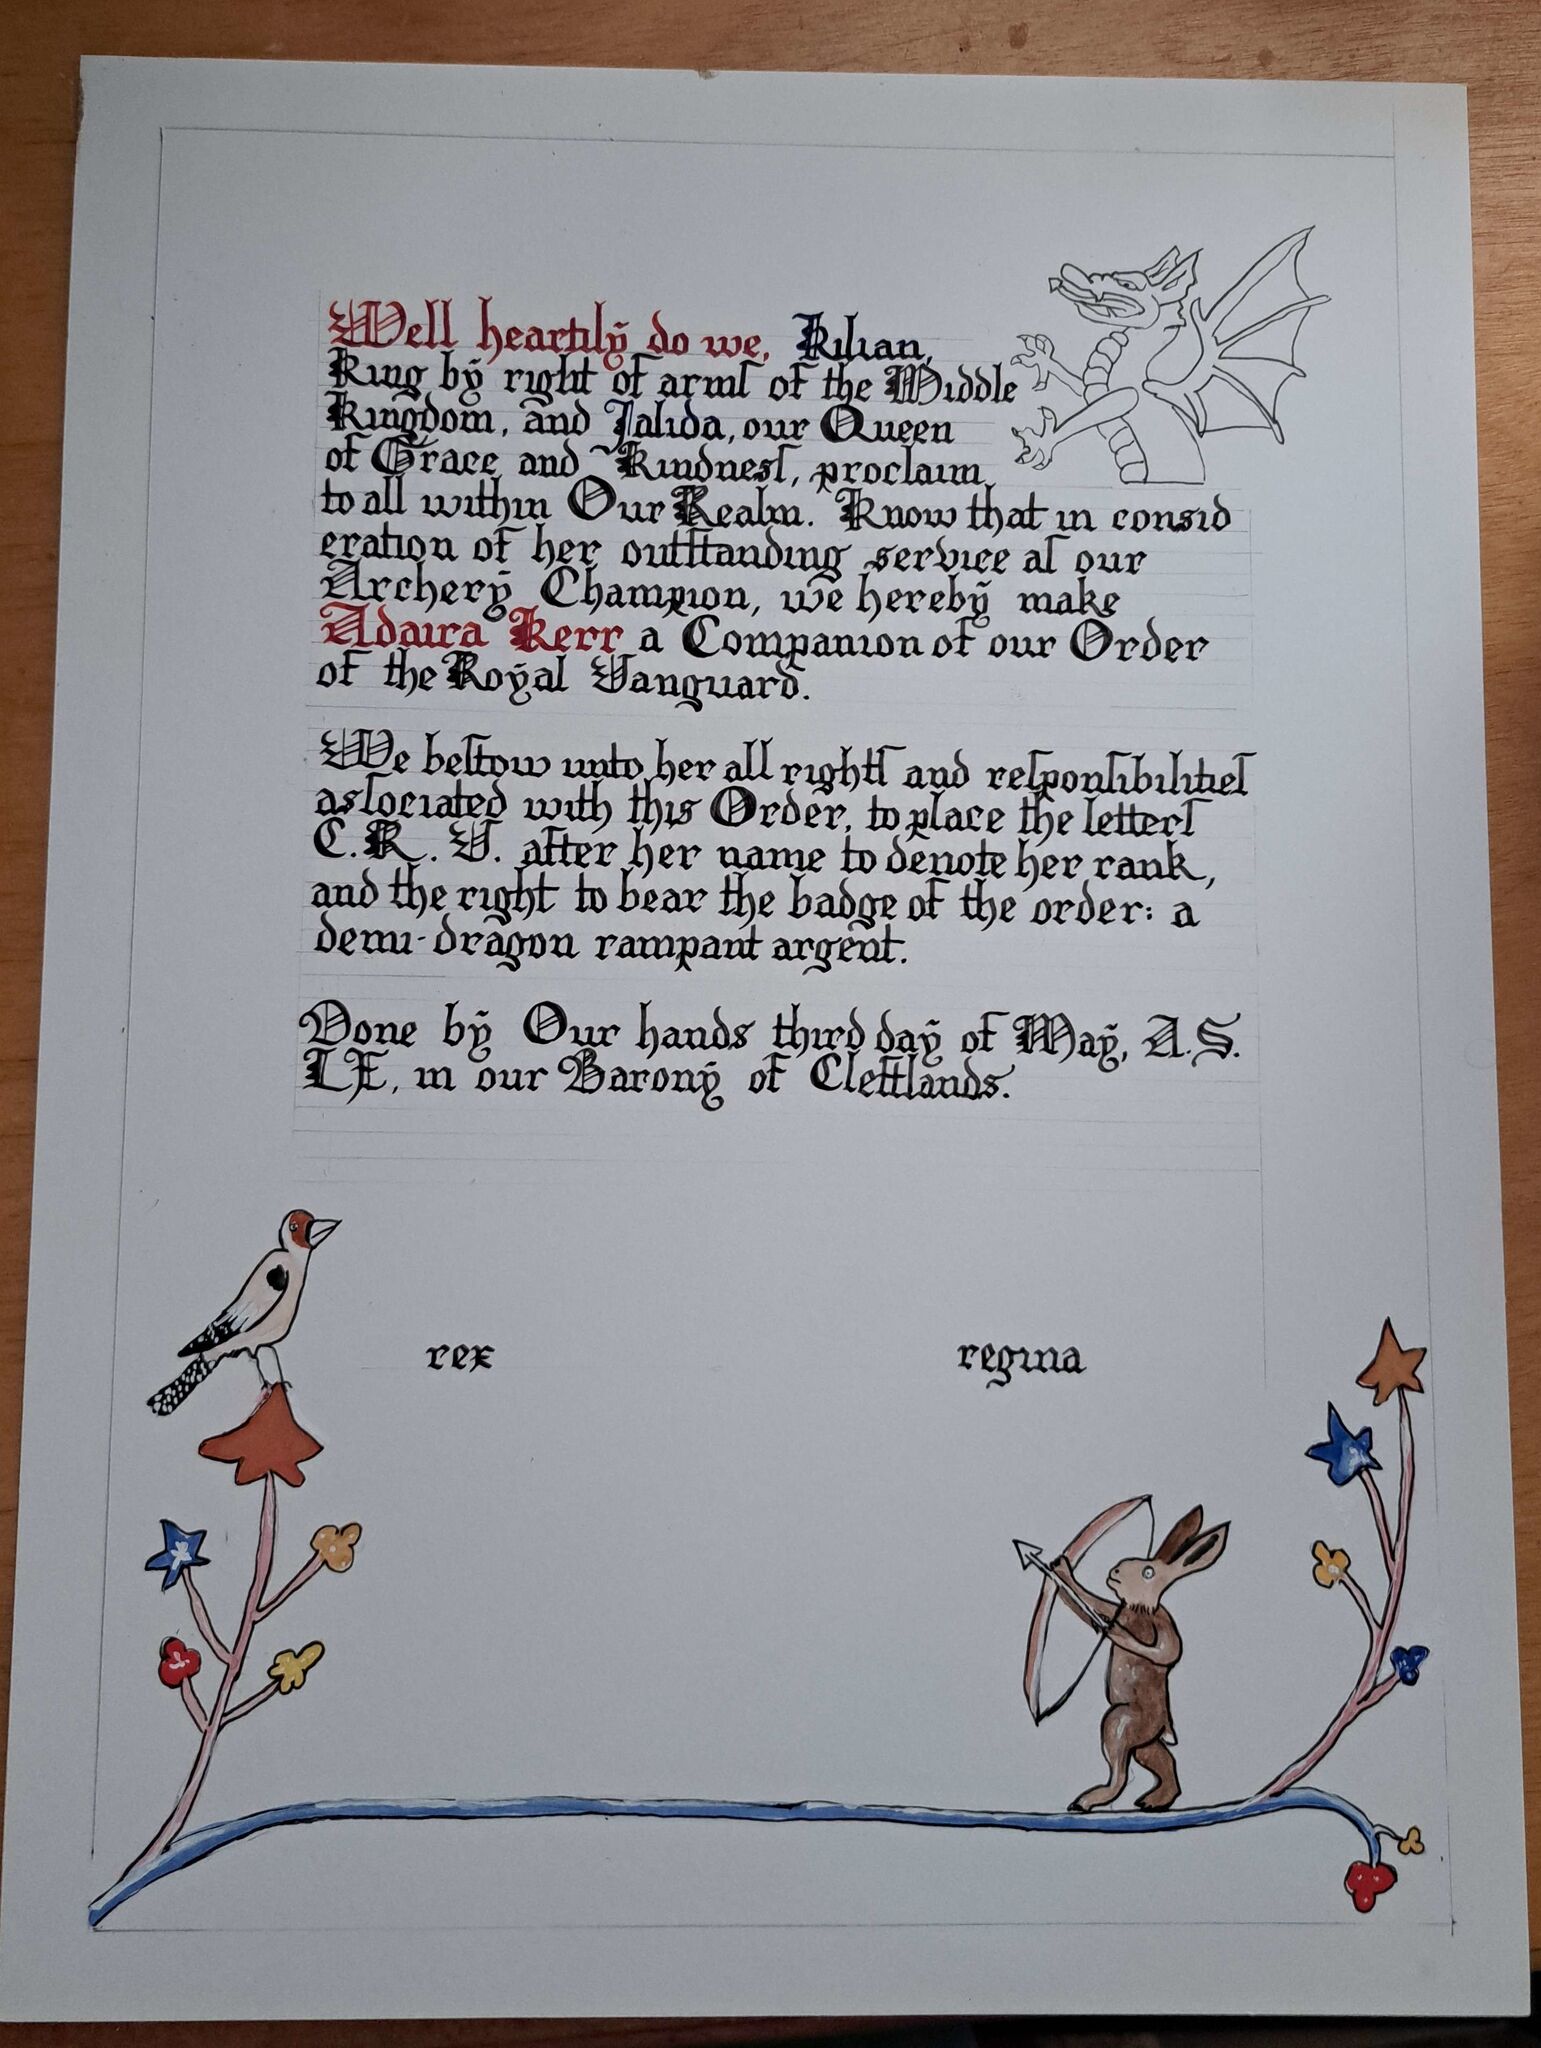 Well heartily do we, Kilian,
King by right of armſ of the Middle
Kingdom, and Jalida, our Queen
of Grace and Kindneſſ, proclaim
to all within Our Realm. Know that in consid
eration of her outſtanding service aſ our
Archery Champion, we hereby make
Adaira Kerr a Companion of our Order
of the Royal Vanguard.
We beſtow unto her all rightſ and reſponſibilitieſ
asſociated with this Order, to place the letterſ
C. R. V. after her name to denote her rank,
and the right to bear the badge of the order: a
demi-dragon rampant argent.
Done by Our hands third day of May, A.S.
LX, in our Barony of Cleftlands.
rex regina